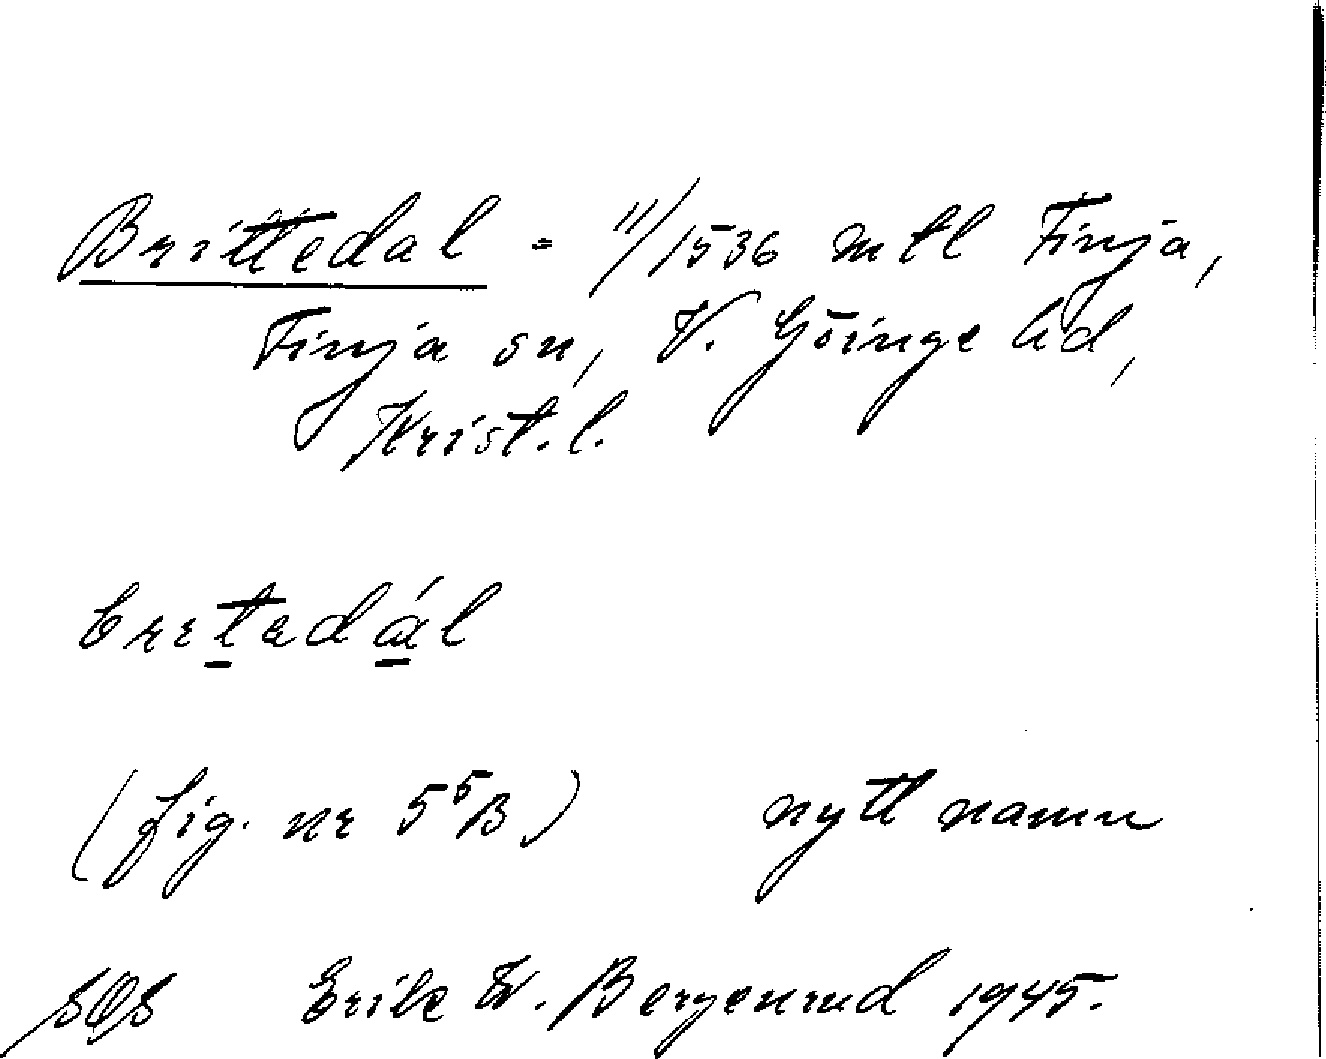 Brittedal = 11/1536 mtl Finja,
Finja sn, V. Göinge hd,
Krist. l.
britadál
(fig. nr 5⁵B) nytt namn
Erik W. Bergenrud 1945.